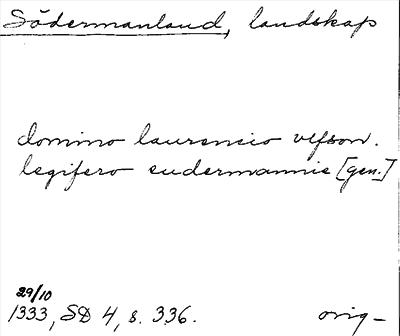 Södermanland, landskap
domino laurencio vlfson.
legifero sudermannie [gen.]
29/10
1333, SD 4, s. 336.
orig-